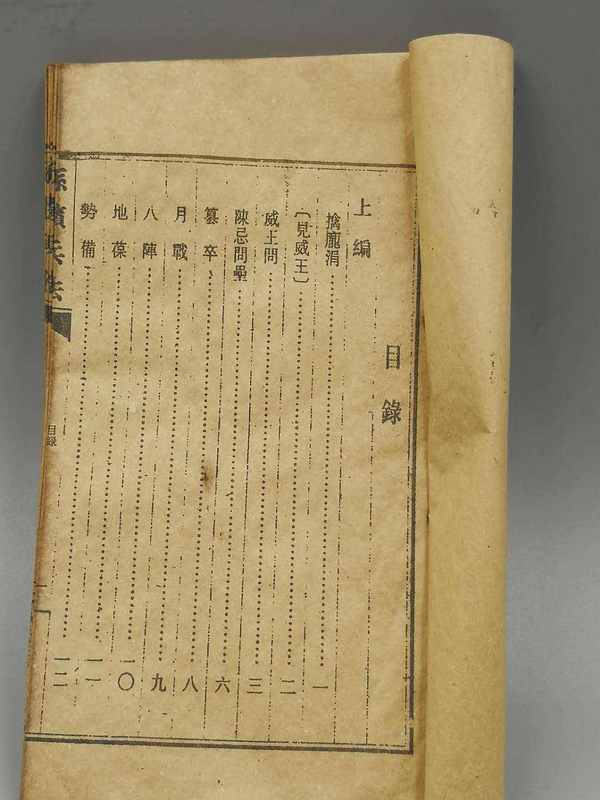 目錄
上編
擒龐涓……一
〔見威王〕……二
威王問……三
陳忌問壘……六
篡卒……八
月戰……九
八陣……一〇
地葆……一一
勢備……一二
孫臏兵法
目録